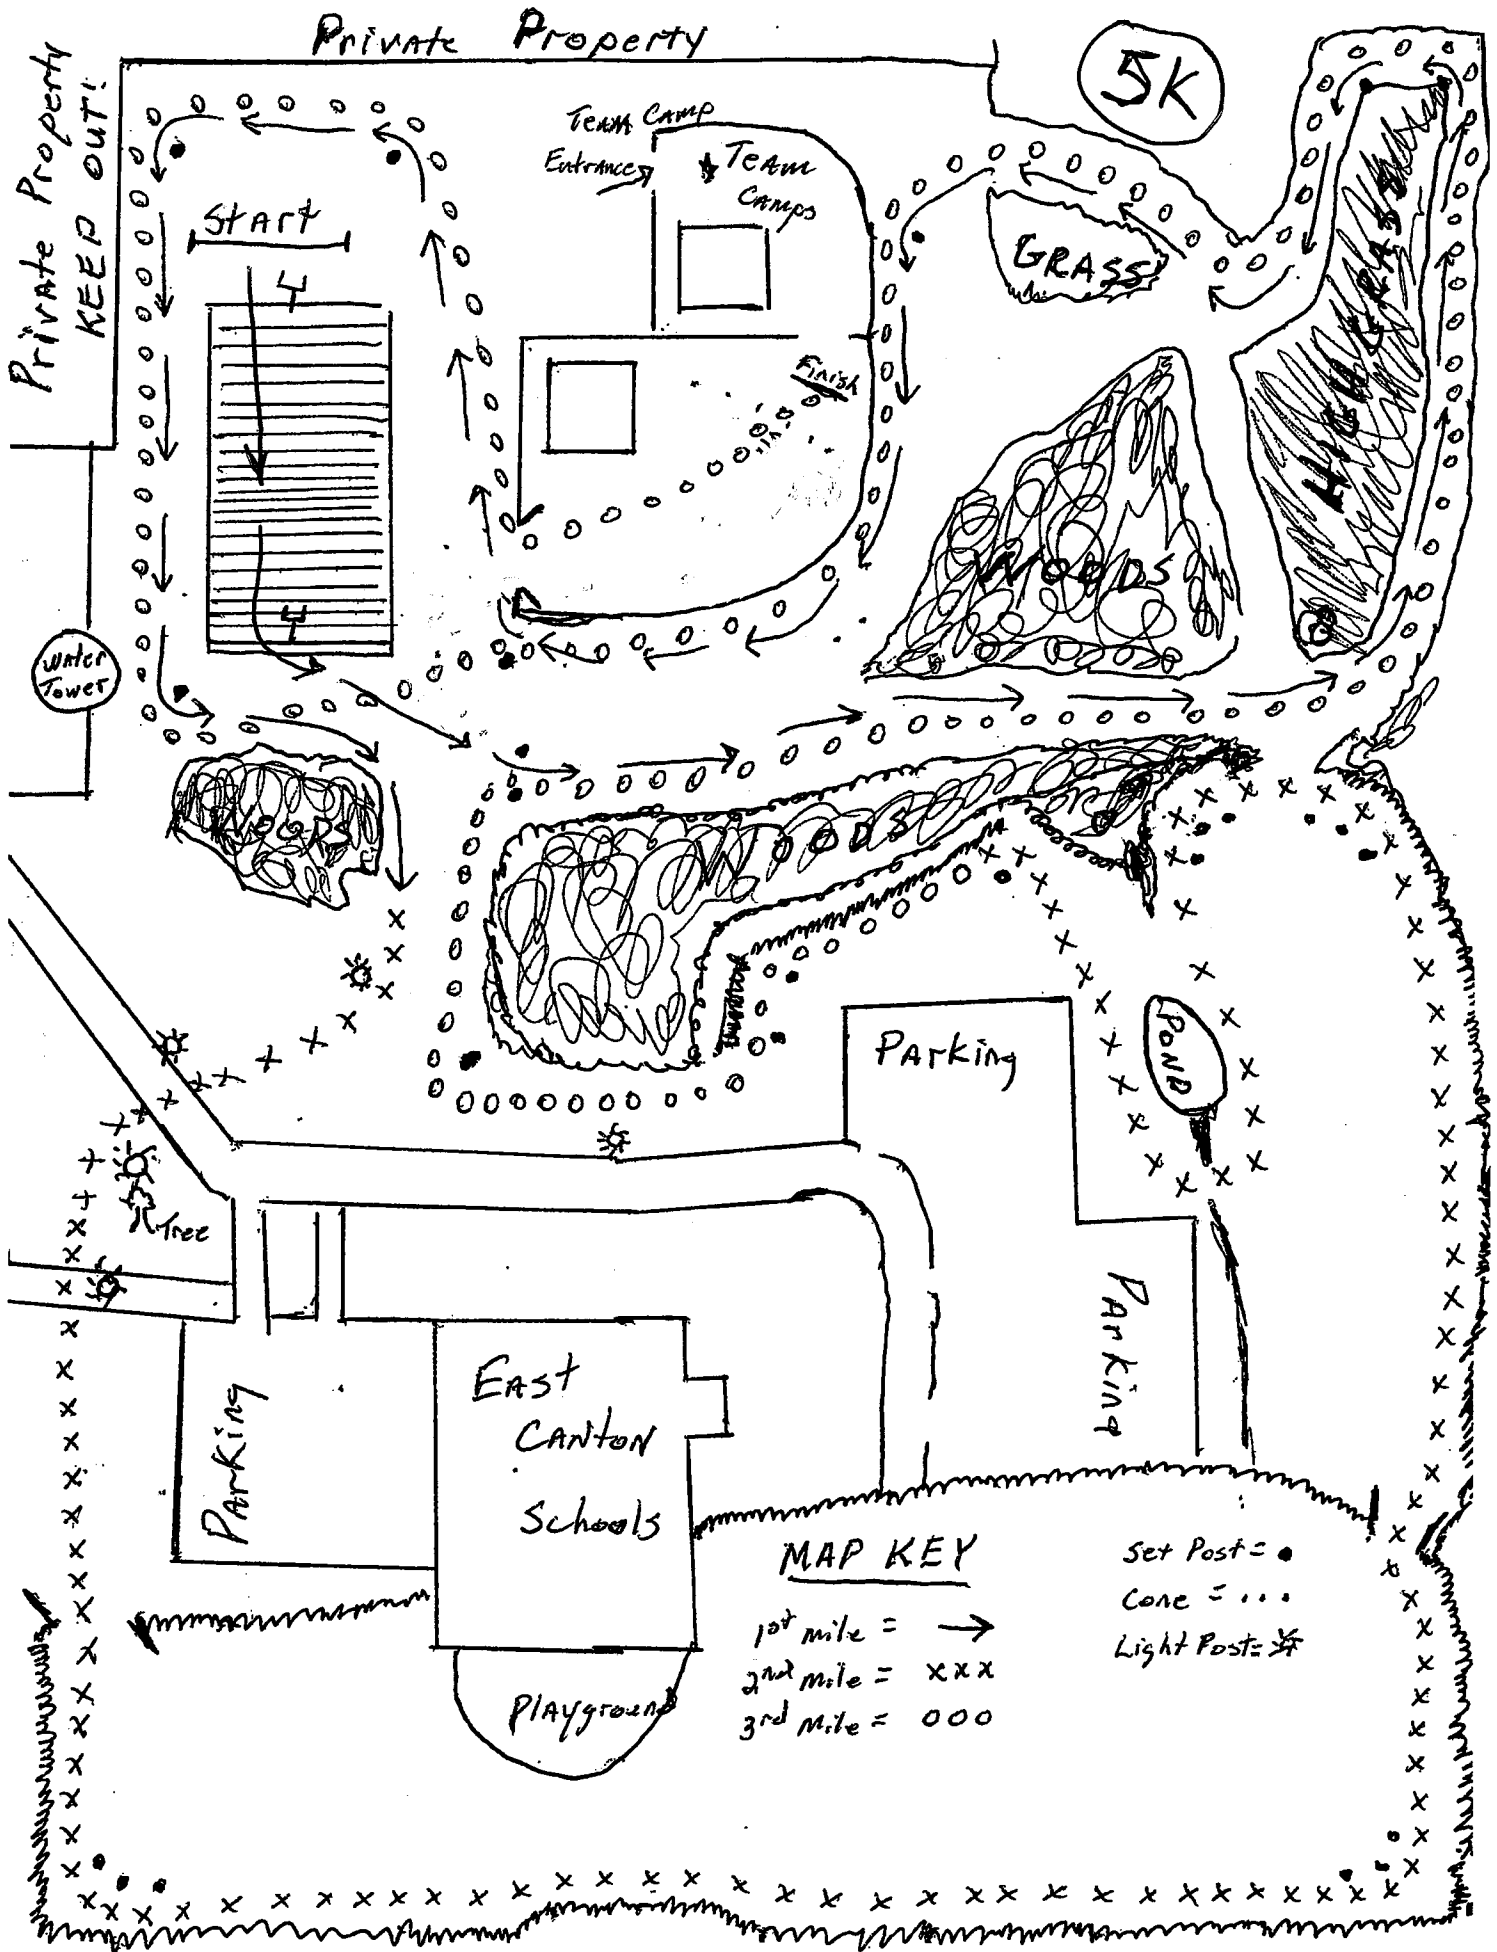 Private Property
5K
Private Property
KEEP OUT!
Team Camp
Entrance
Team
Camps
Start
GRASS
HIGH GRASS
Finish
WOODS
Water
Tower
WOODS
WOODS
Parking
POND
Tree
Parking
Parking
EAST
CANTON
Schools
Playground
MAP KEY
1st mile =
2nd mile = xxx
3rd Mile = 000
Set Post =
Cone = ...
Light Post=